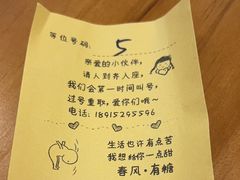 等位号码: 5
亲爱的小伙伴,
请人到齐入座,
我们会第一时间叫号,
过号重取, 爱你们哦~
电话: 18915295596
生活也许有点苦
我想给你一点甜
春风·有糖